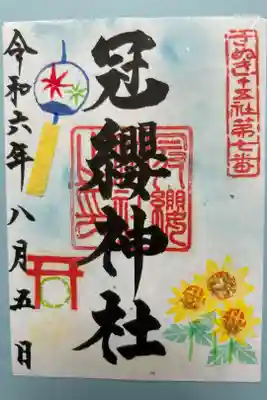 さぬき十五社第七番
冠纓神社
令和六年八月五日